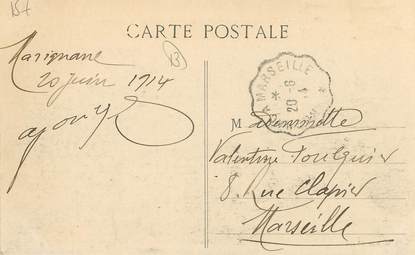 154
CARTE POSTALE
Marignane
20 juin 1914
13
A MARSEILLE
20 - 6
Mademoiselle
Valentine Foulquier
8. Rue Clapier
Marseille